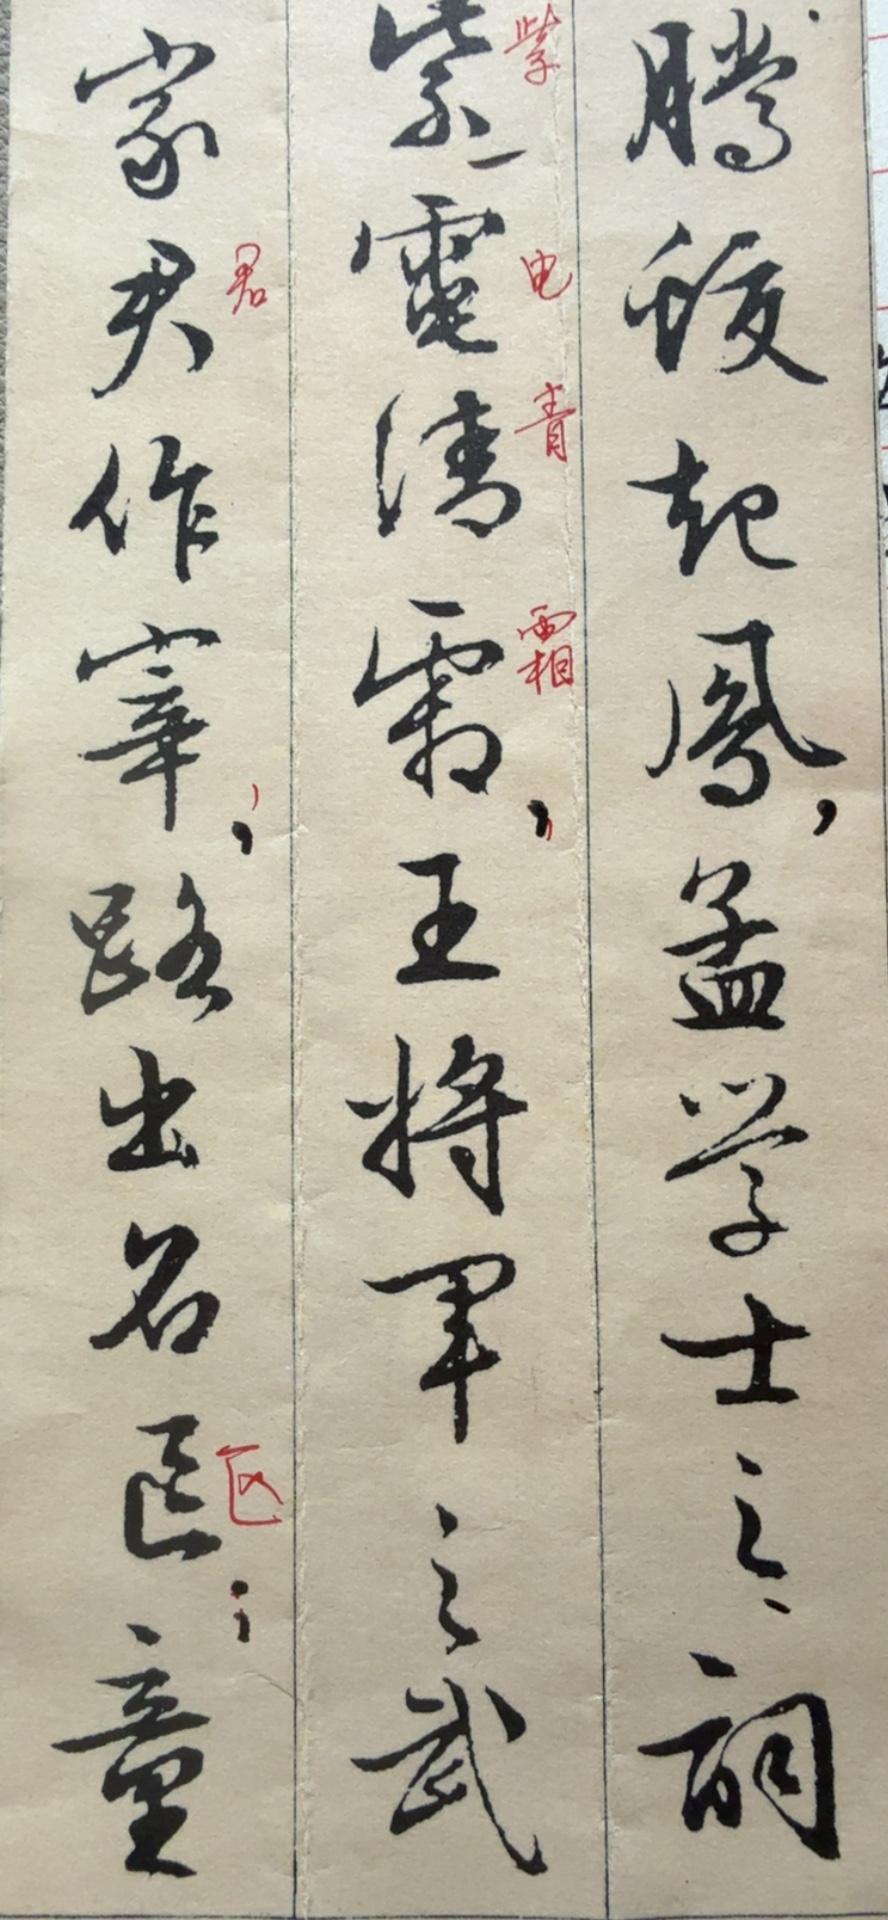 騰蛟起鳳，孟学士之詞
紫電清霜，王将軍之武
紫
电
青
霜
家君作宰，路出名區；童
君
区